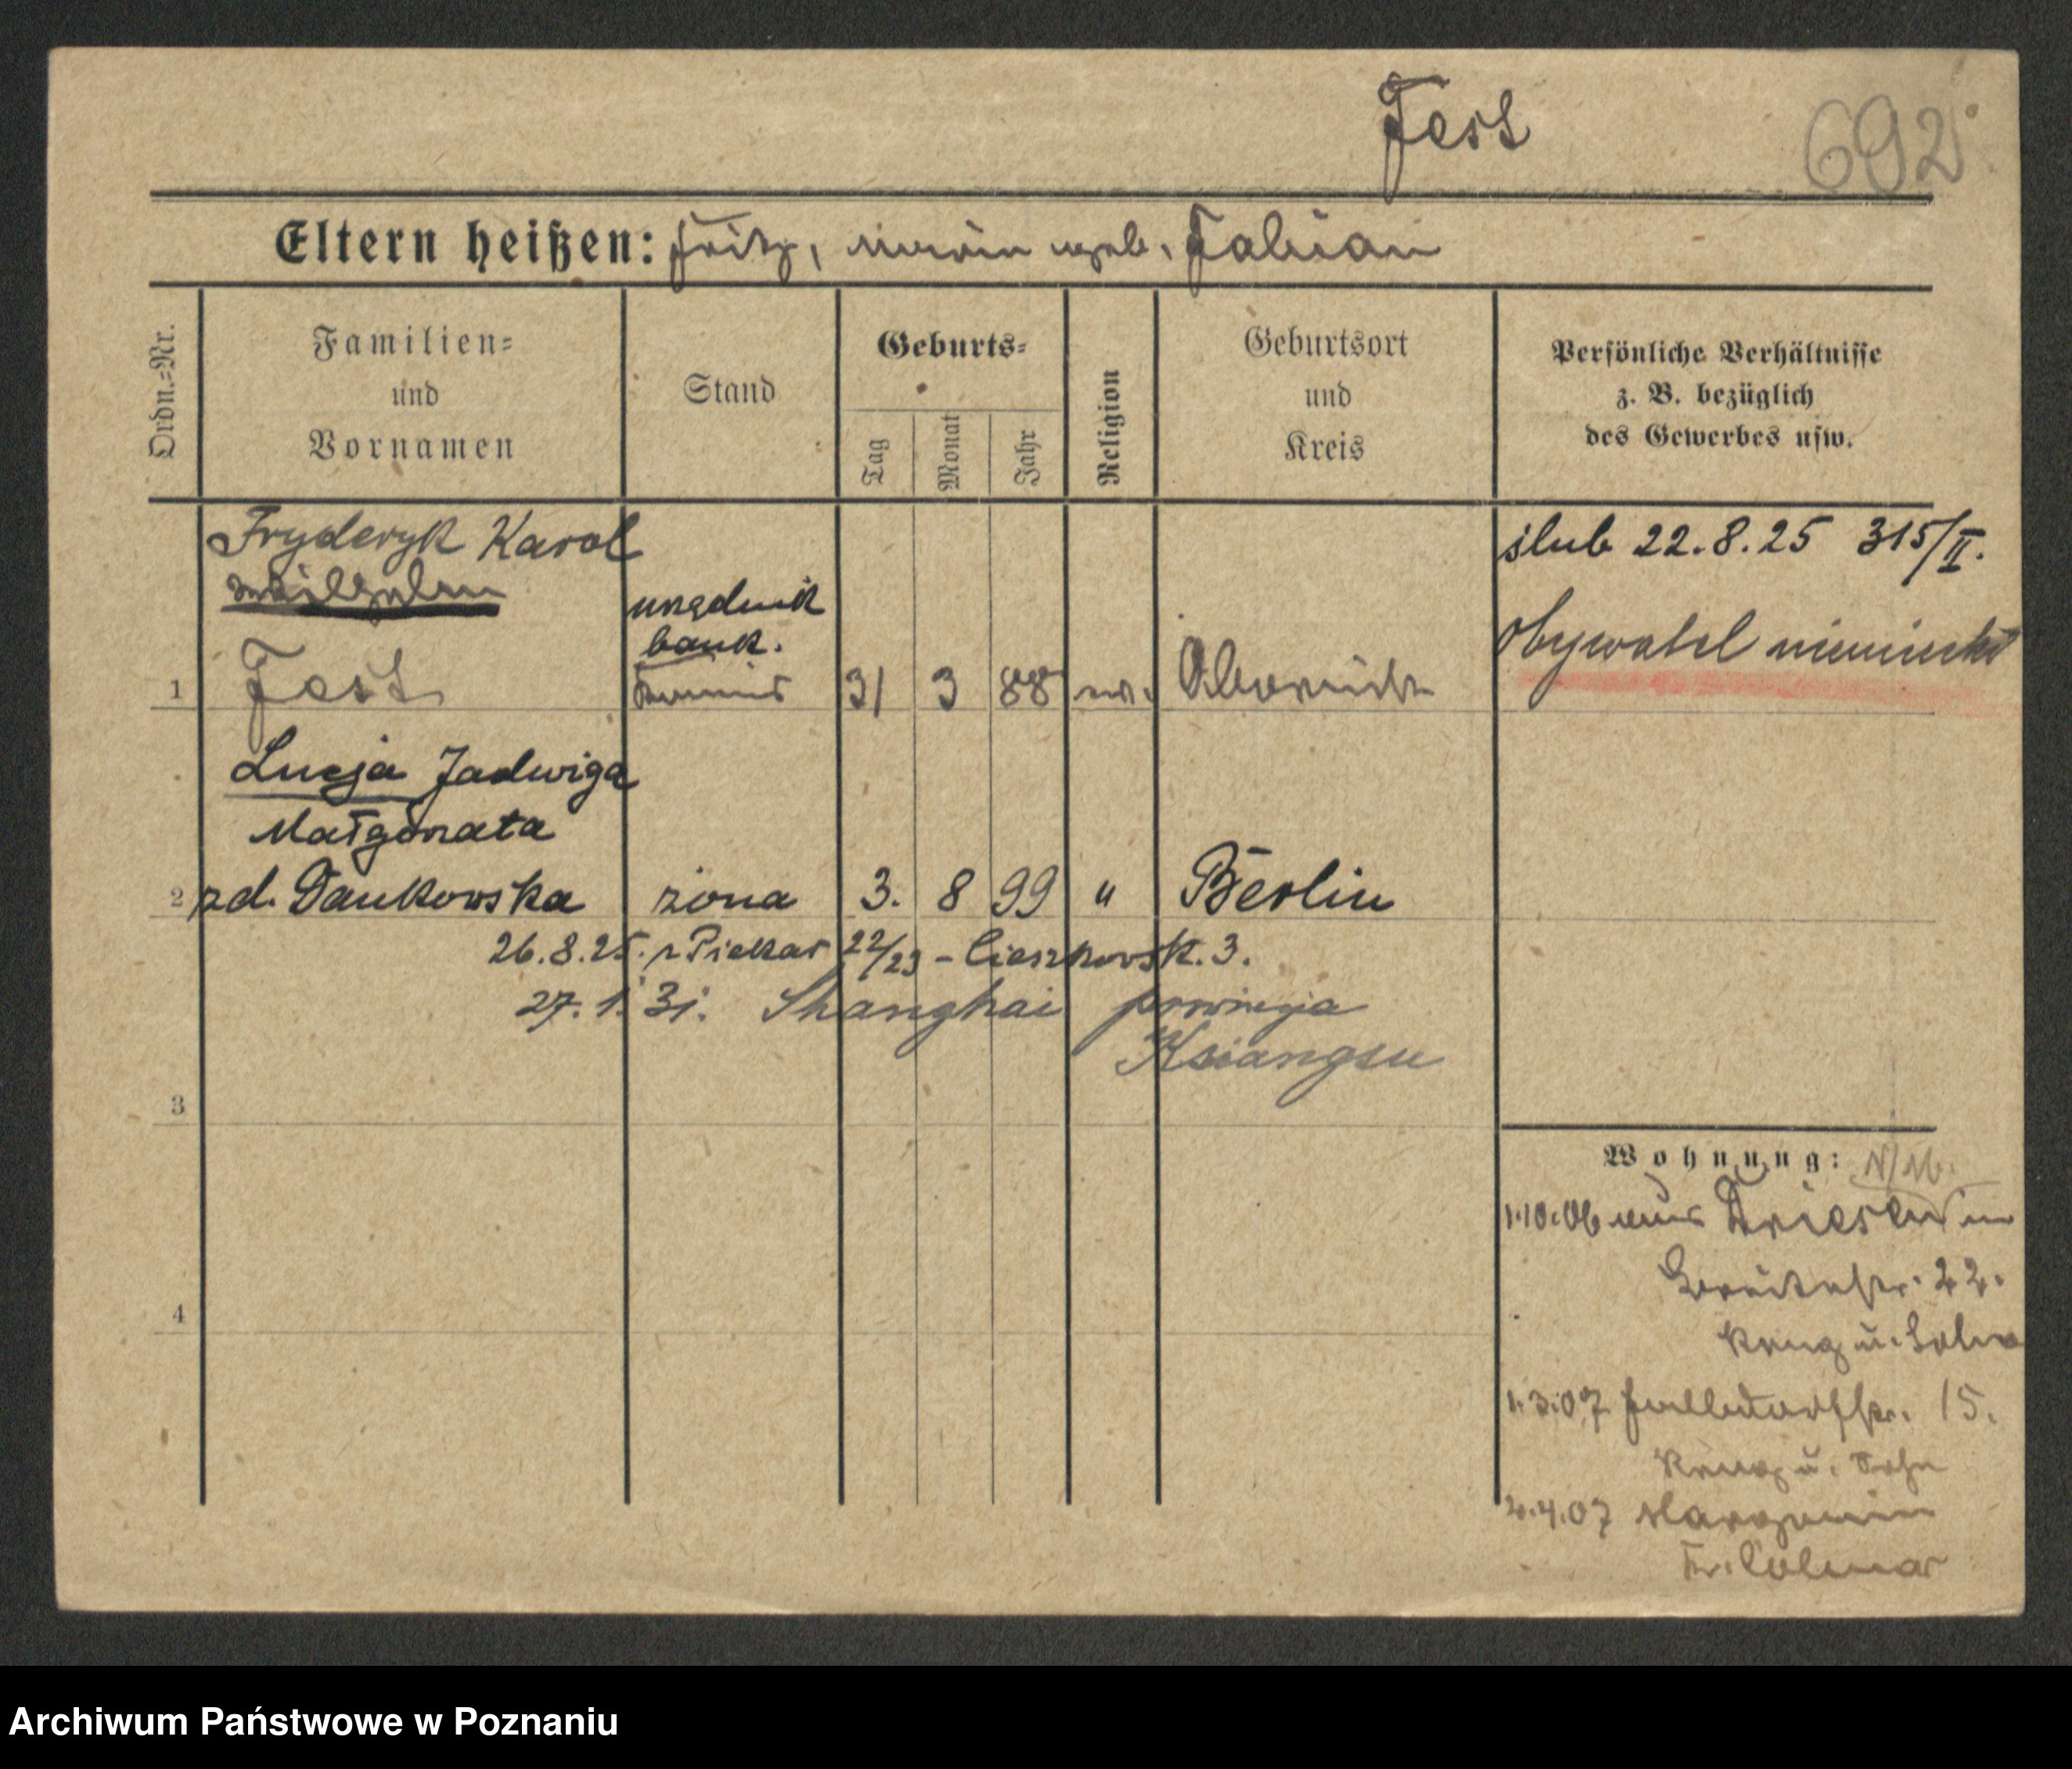 Fest
692
Eltern heißen: Fritz, Maria geb. Fabian
Ordn.=Nr.
Familien=
und
Vornamen
Stand
Geburts=
Tag
Monat
Jahr
Religion
Geburtsort
und
Kreis
Persönliche Verhältnisse
z. B. bezüglich
des Gewerbes usw.
Fryderyk Karol
Wilhelm
1 Fest
urzędnik
bank.
Kommis
31 3 88 ev.
ślub 22.8.25 315/II.
Obywatel niemiecki
Łucja Jadwiga
Małgorzata
2 zd. Dankowska żona 3. 8 99 " Berlin
26.8.25. z Piekar 22/23 - Cieszkowsk. 3.
27.1.31. Shanghai prowincja
Ksiangsu
3
4
Wohnung:
1.10.06 aus Driesen in
Breitestr. 22.
Krug u. Sohn
1.3.07 15.
Krug u. Sohn
2.4.07 Margonin
Kr. Colmar
Archiwum Państwowe w Poznaniu